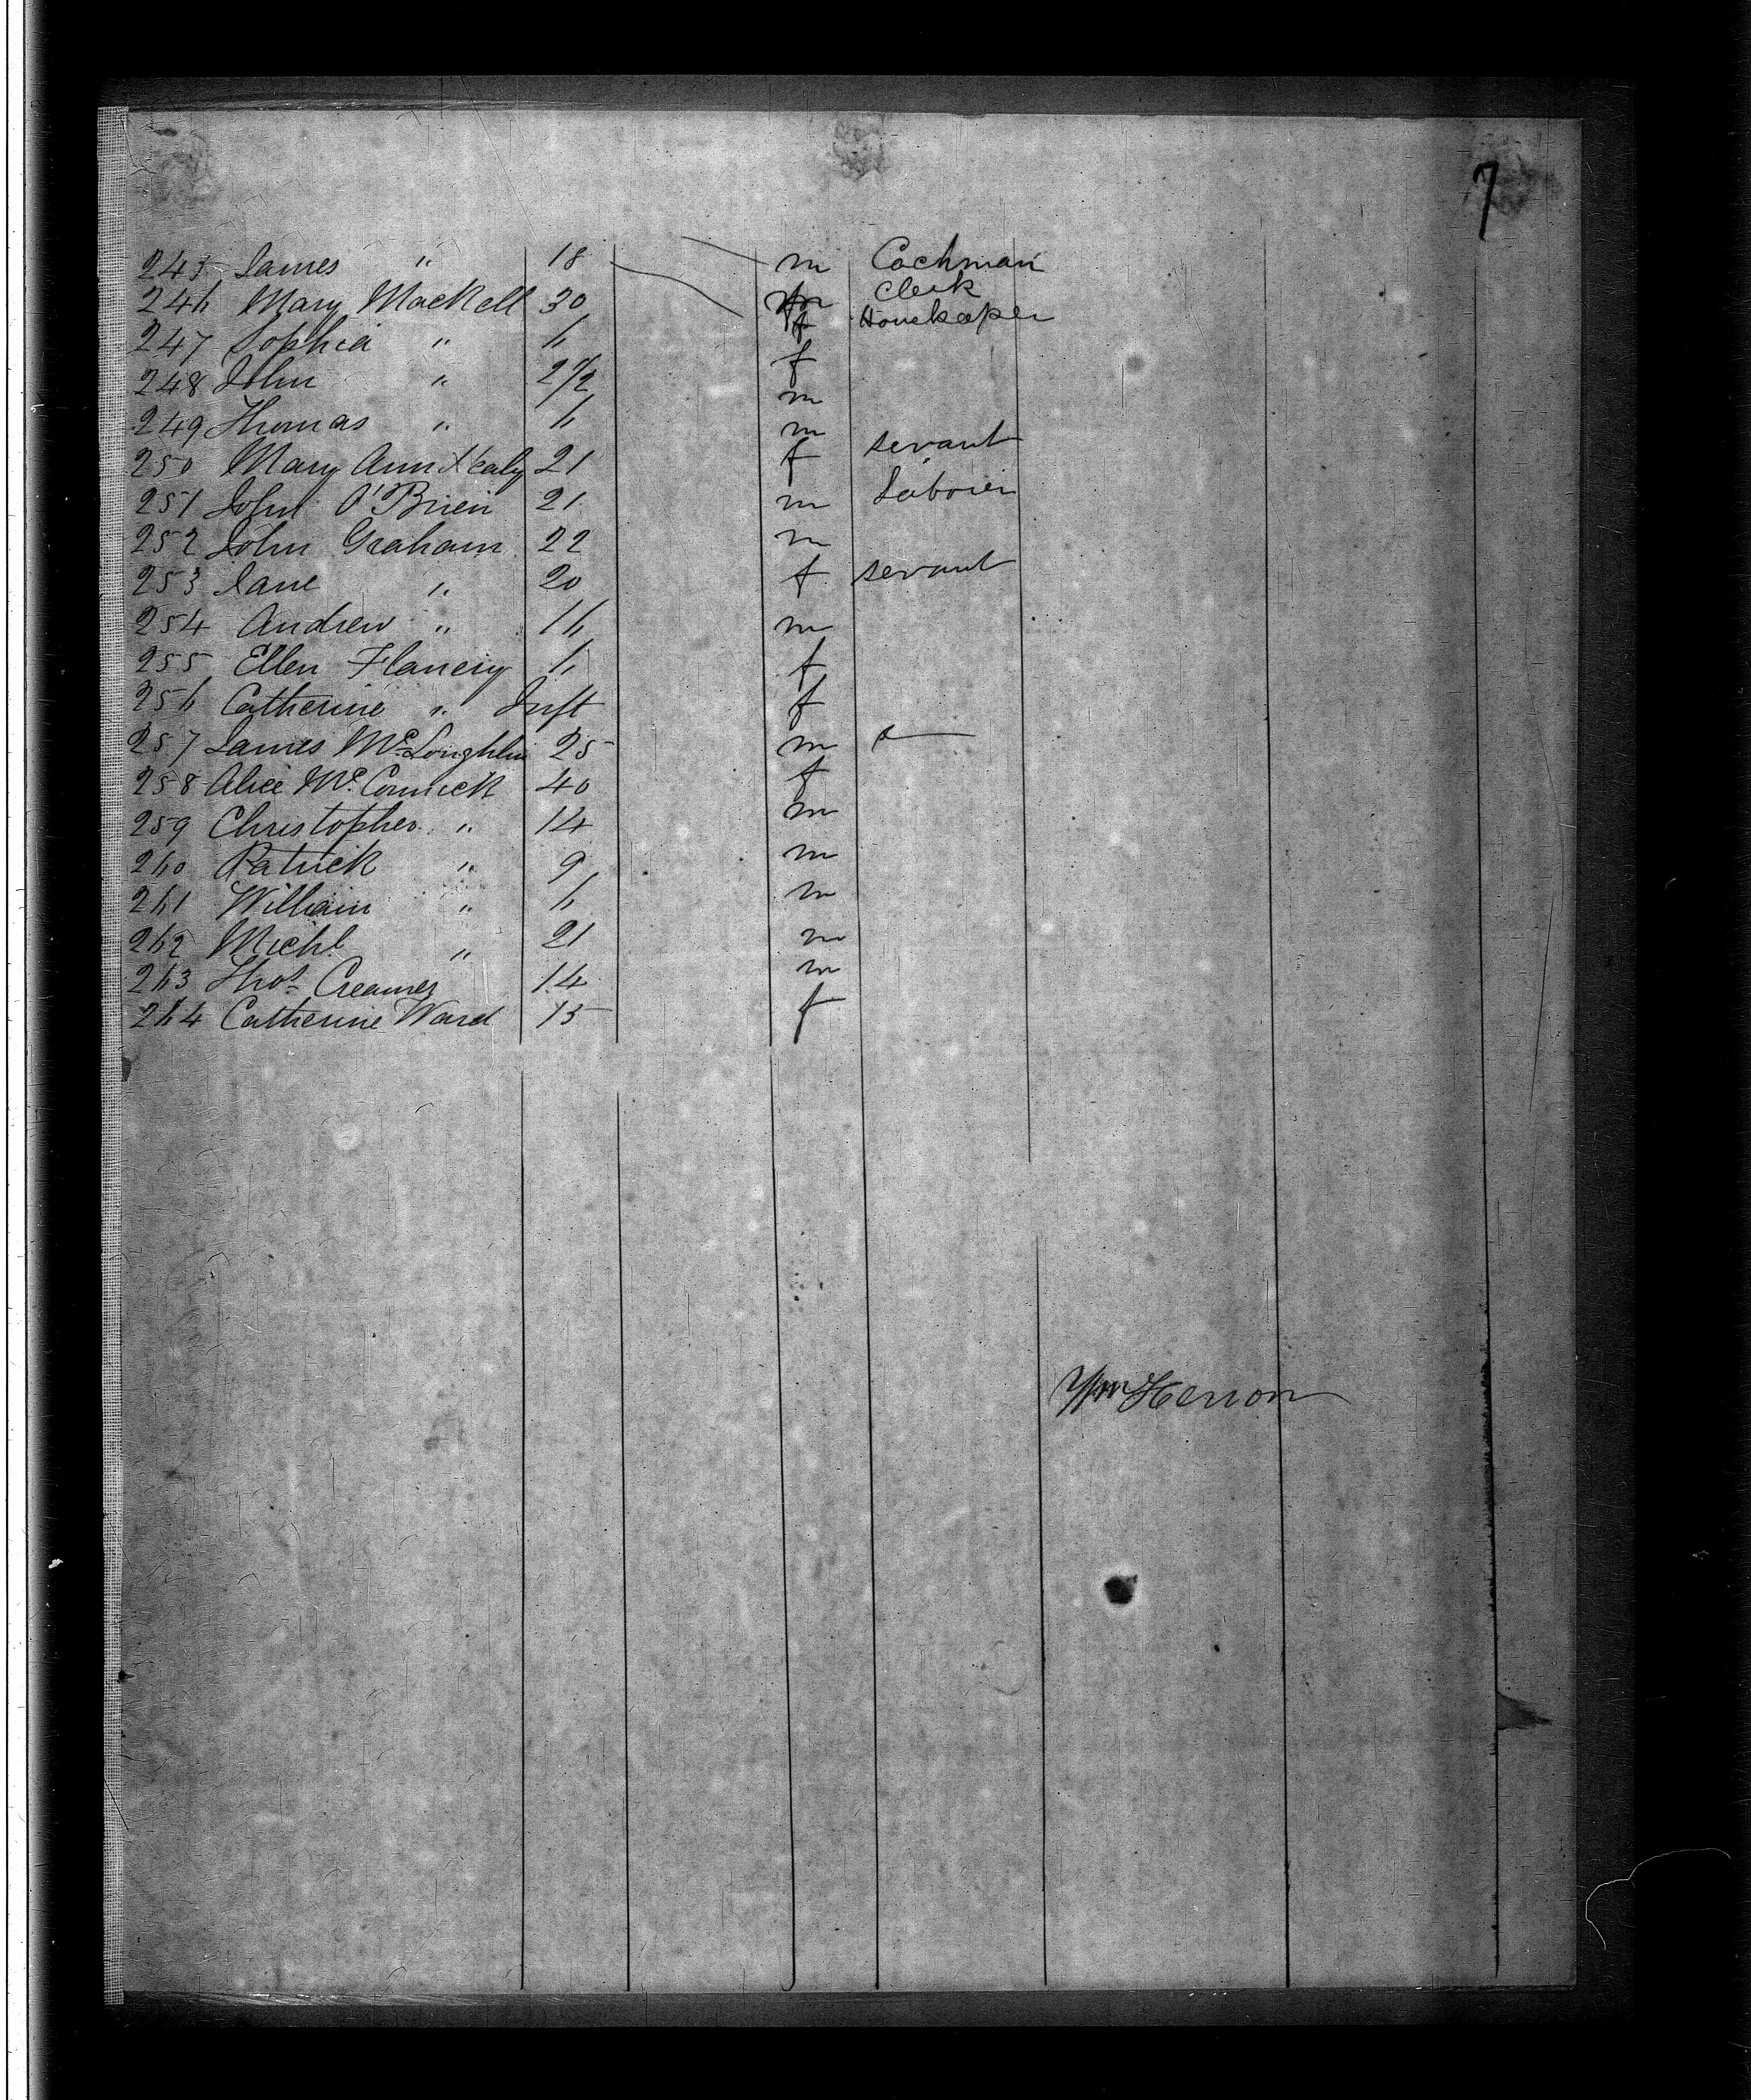 7
245 James " 18 m Cochman
Clerk
246 Mary Mackell 30 f Housekeeper
247 Sophia " 6 f
248 John " 2 1/2 m
249 Thomas " 6 m
250 Mary Ann Healy 21 f servant
251 John O'Brien 21 m Laborer
252 John Graham 22 m
253 Jane " 20 f servant
254 Andrew " 16 m
255 Ellen Flanery 6 f
256 Catherine " Inft f
257 James McLoughlin 25 m
258 Alice McCormick 40 f
259 Christopher " 14 m
260 Patrick " 9 m
261 William " 6 m
262 Michl " 21 m
263 Thos Creamer 14 m
264 Catherine Ward 15 f
Wm Herron